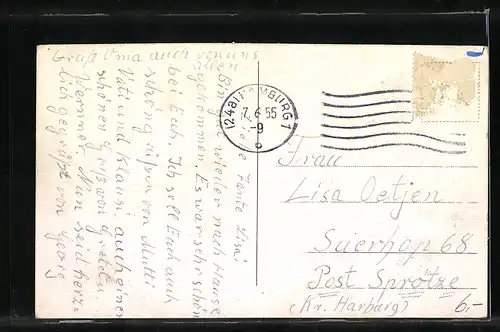 Gruß Oma auch von uns
allen.
Liebe Tante Lisa!
Bin gut wieder nach Hause
angekommen. Es war sehr schön
bei Euch. Ich soll Euch auch
schön grüßen von Mutti
Vati und Klausi auch einen
schönen Gruß von
Werner. Nun seid herz=
lich gegrüßt von Georg
(24a) HAMBURG 1
7.6.55
-9
Frau
Lisa Oetjen
Suerhop 68
Post Sprötze
(Kr. Harburg)
6,-